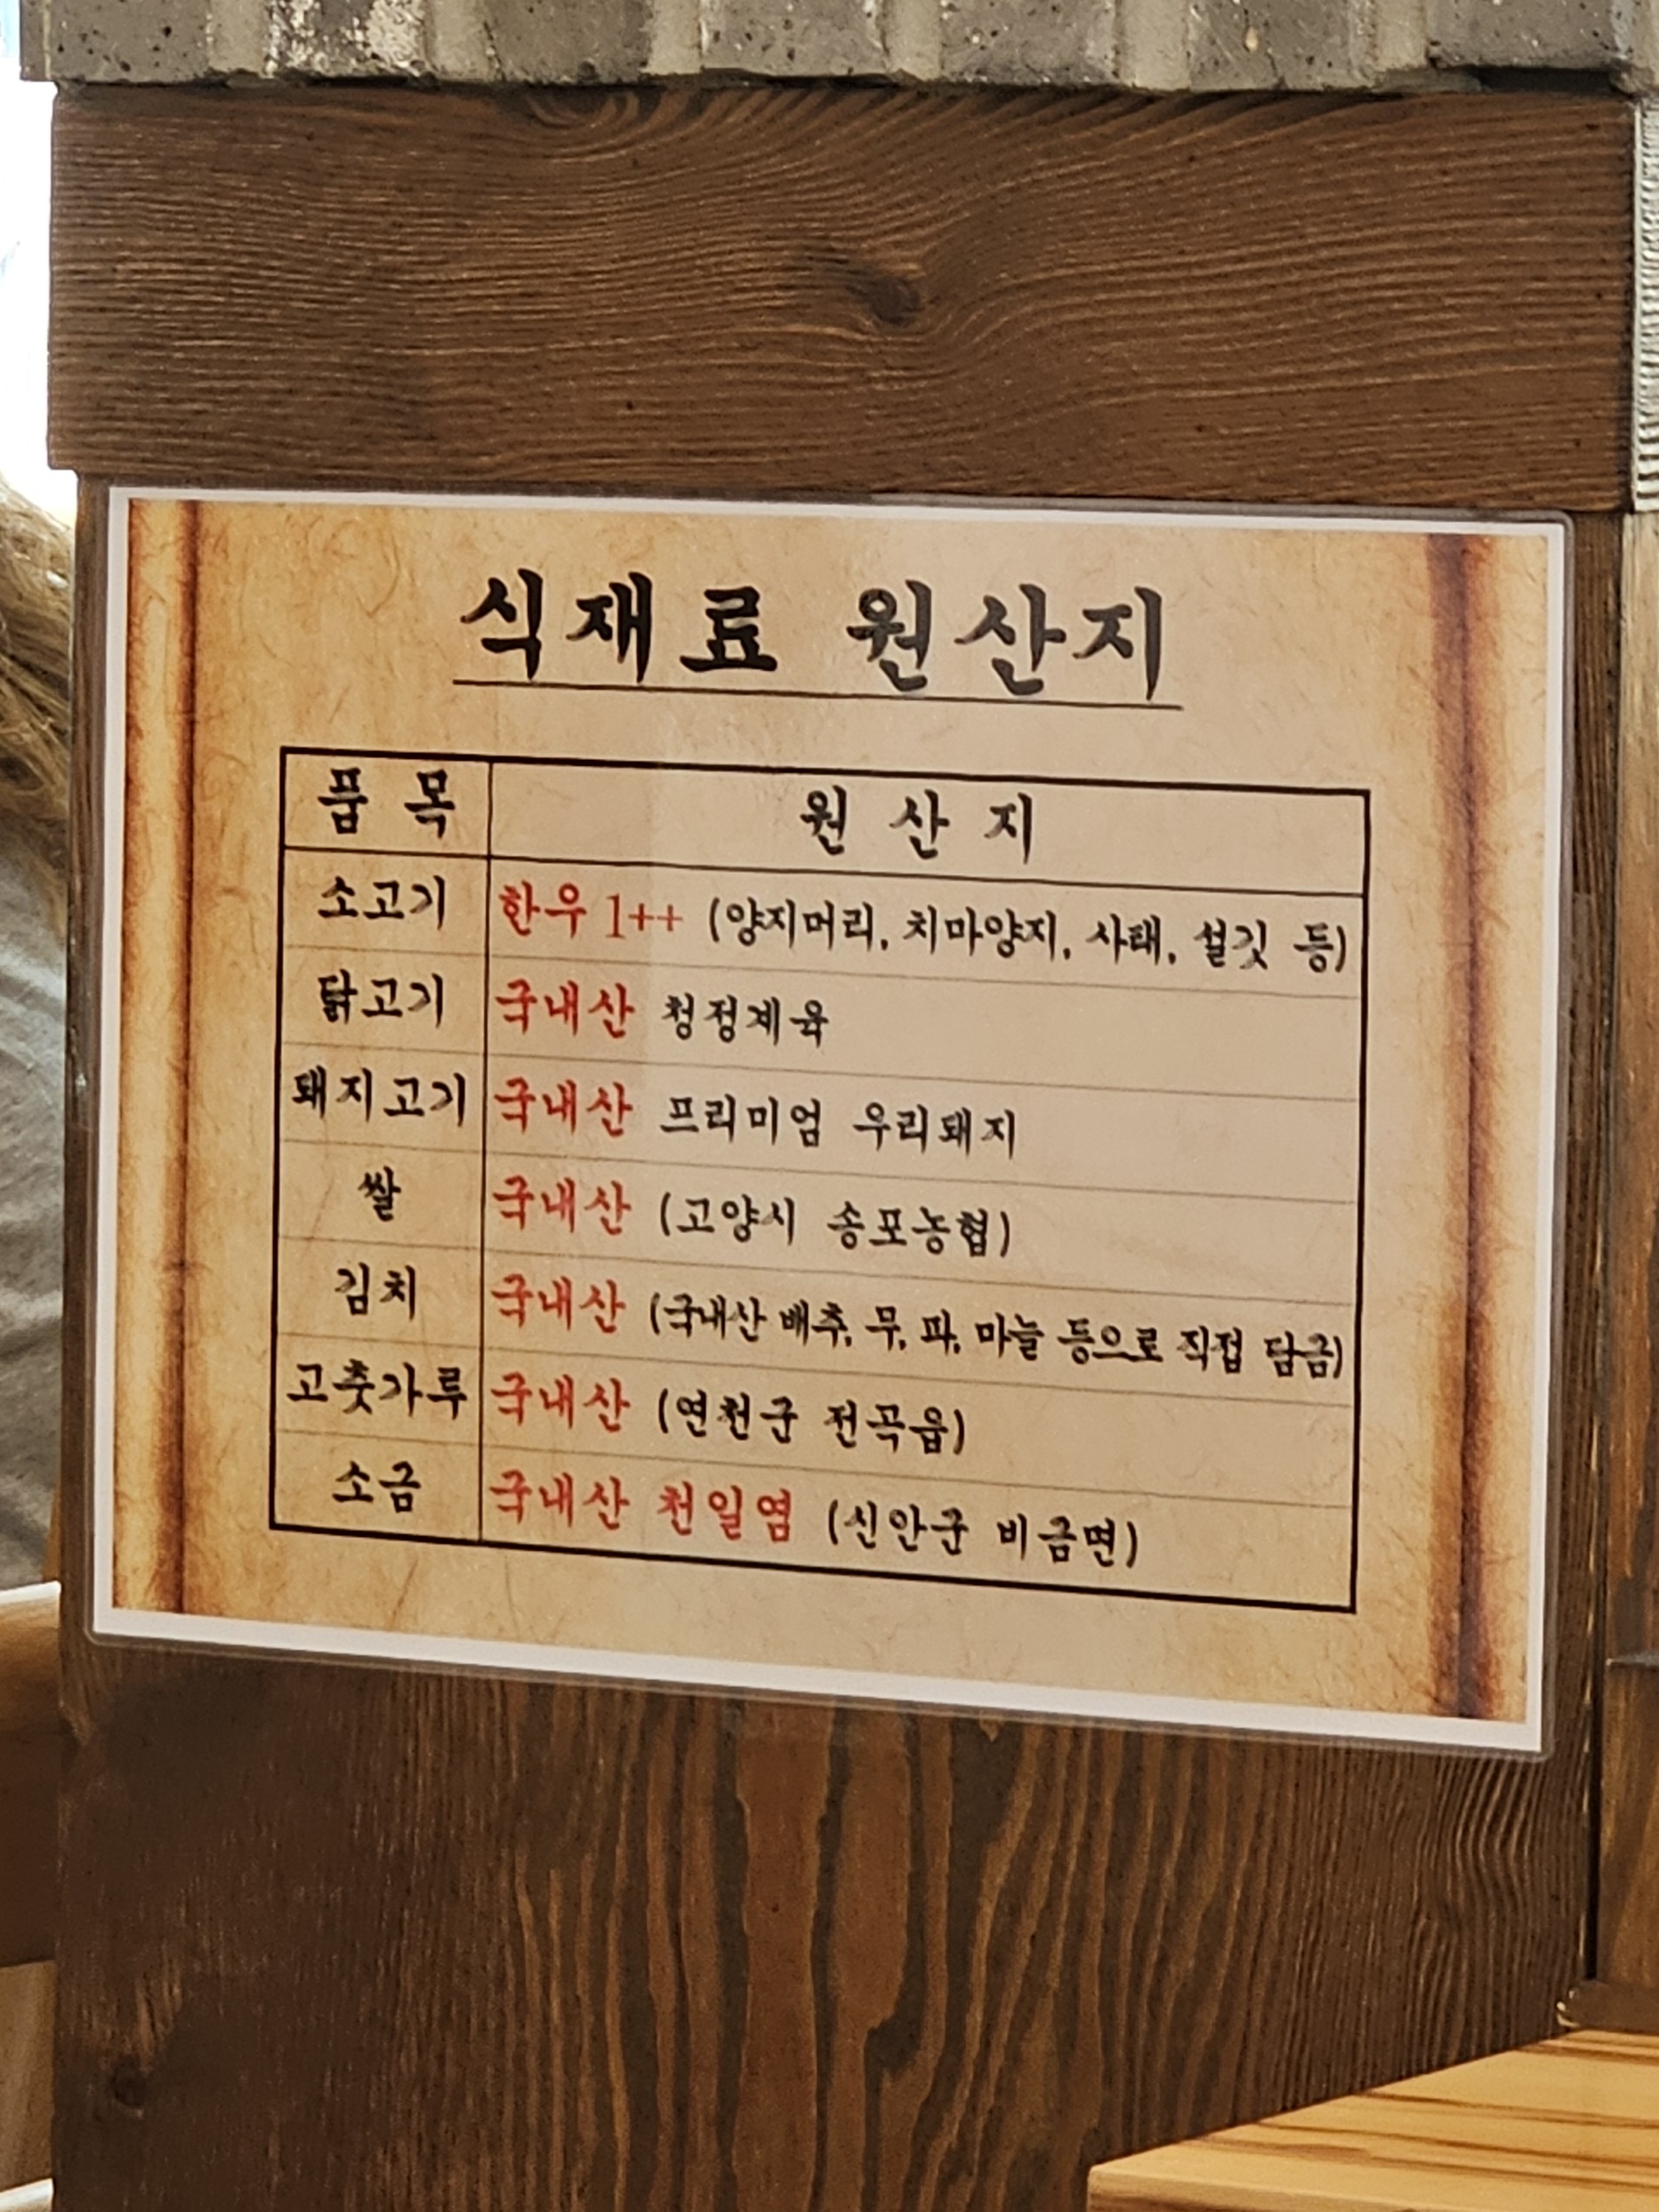 식재료 원산지
품 목 원 산 지
소고기 한우 1++ (양지머리, 치마양지, 사태, 설깃 등)
닭고기 국내산 청정계육
돼지고기 국내산 프리미엄 우리돼지
쌀 국내산 (고양시 송포농협)
김치 국내산 (국내산 배추, 무, 파, 마늘 등으로 직접 담금)
고춧가루 국내산 (연천군 전곡읍)
소금 국내산 천일염 (신안군 비금면)